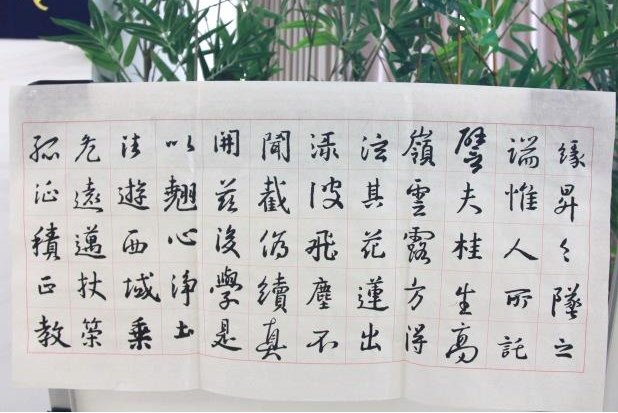 緣昇々墜之
端惟人所託
譬夫桂生高
嶺雲露方得
泫其花蓮出
淥波飛塵不
聞截偽續真
開茲後學是
以翹心淨土
法遊西域乘
危遠邁杖策
孤征積正教